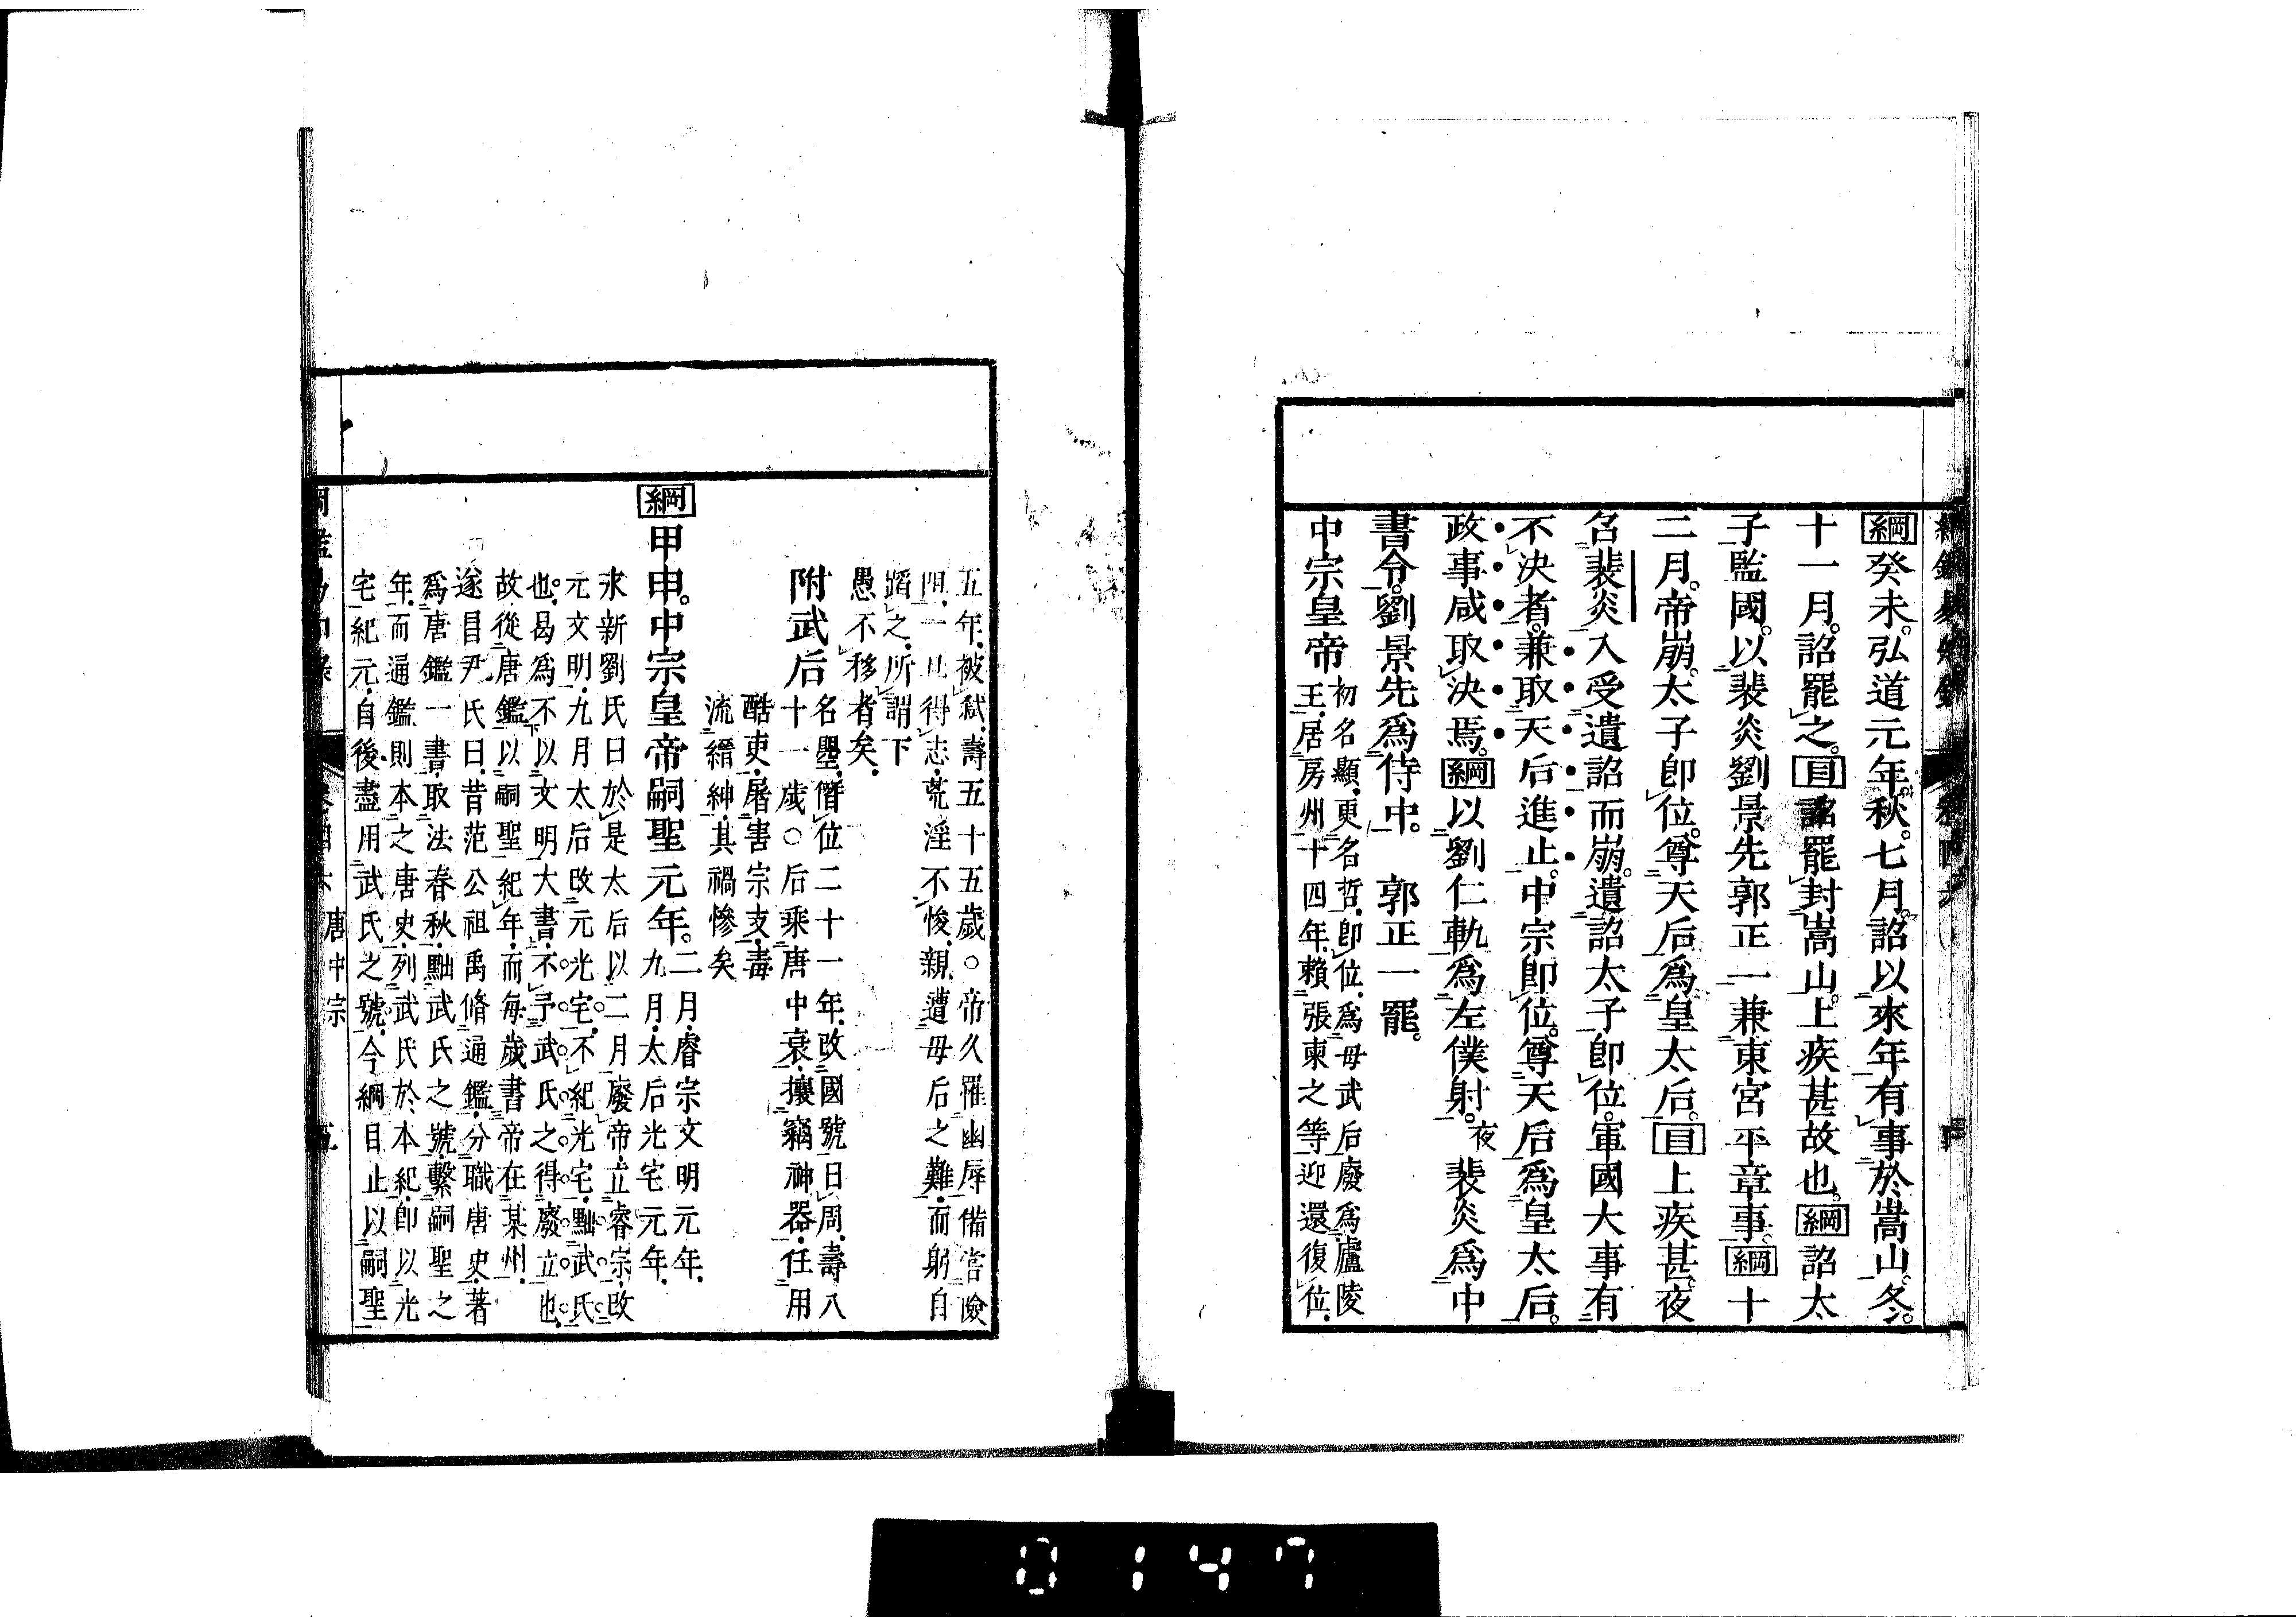 綱癸未。弘道元年。秋。七月。詔以來年有事於嵩山。冬。
十一月。詔罷之。目詔罷封嵩山。上疾甚故也。綱詔太
子監國。以裴炎劉景先郭正一兼東宮平章事。綱十
二月。帝崩。太子卽位。尊天后爲皇太后。目上疾甚。夜
召裴炎入受遺詔而崩。遺詔太子卽位。軍國大事有
不決者。兼取天后進止。中宗卽位。尊天后爲皇太后。
政事咸取決焉。綱以劉仁軌爲左僕射。夜裴炎爲中
書令。劉景先爲侍中。郭正一罷。
中宗皇帝
初名顯、更名哲、卽位、爲母武后廢爲廬陵
王、居房州十四年、賴張柬之等迎還復位、
五年、被弒、壽五十五歲○帝久罹幽辱備嘗險
阻、一旦得志、荒淫不悛、親遭母后之難、而躬自
蹈之、所謂下
愚不移者矣、
附武后
名曌、僭位二十一年、改國號曰周、壽八
十一歲○后乘唐中衰、攘竊神器、任用
酷吏、屠害宗支、毒
流縉紳、其禍慘矣
綱甲申。中宗皇帝嗣聖元年。
二月、睿宗文明元年、
九月、太后光宅元年、
永新劉氏曰於是太后以二月廢帝、立睿宗、改
元文明、九月太后改元光宅、不紀光宅、黜武氏
也、曷爲不以文明大書、不予武氏之得廢立也、
故從唐鑑、以嗣聖紀年、而每歲書帝在某州、
遂昌尹氏曰、昔范公祖禹修通鑑、分職唐史、著
爲唐鑑一書、取法春秋、黜武氏之號、繫嗣聖之
年、而通鑑則本之唐史、列武氏於本紀、卽以光
宅紀元、自後盡用武氏之號、今綱目止以嗣聖
唐中宗
五
0147